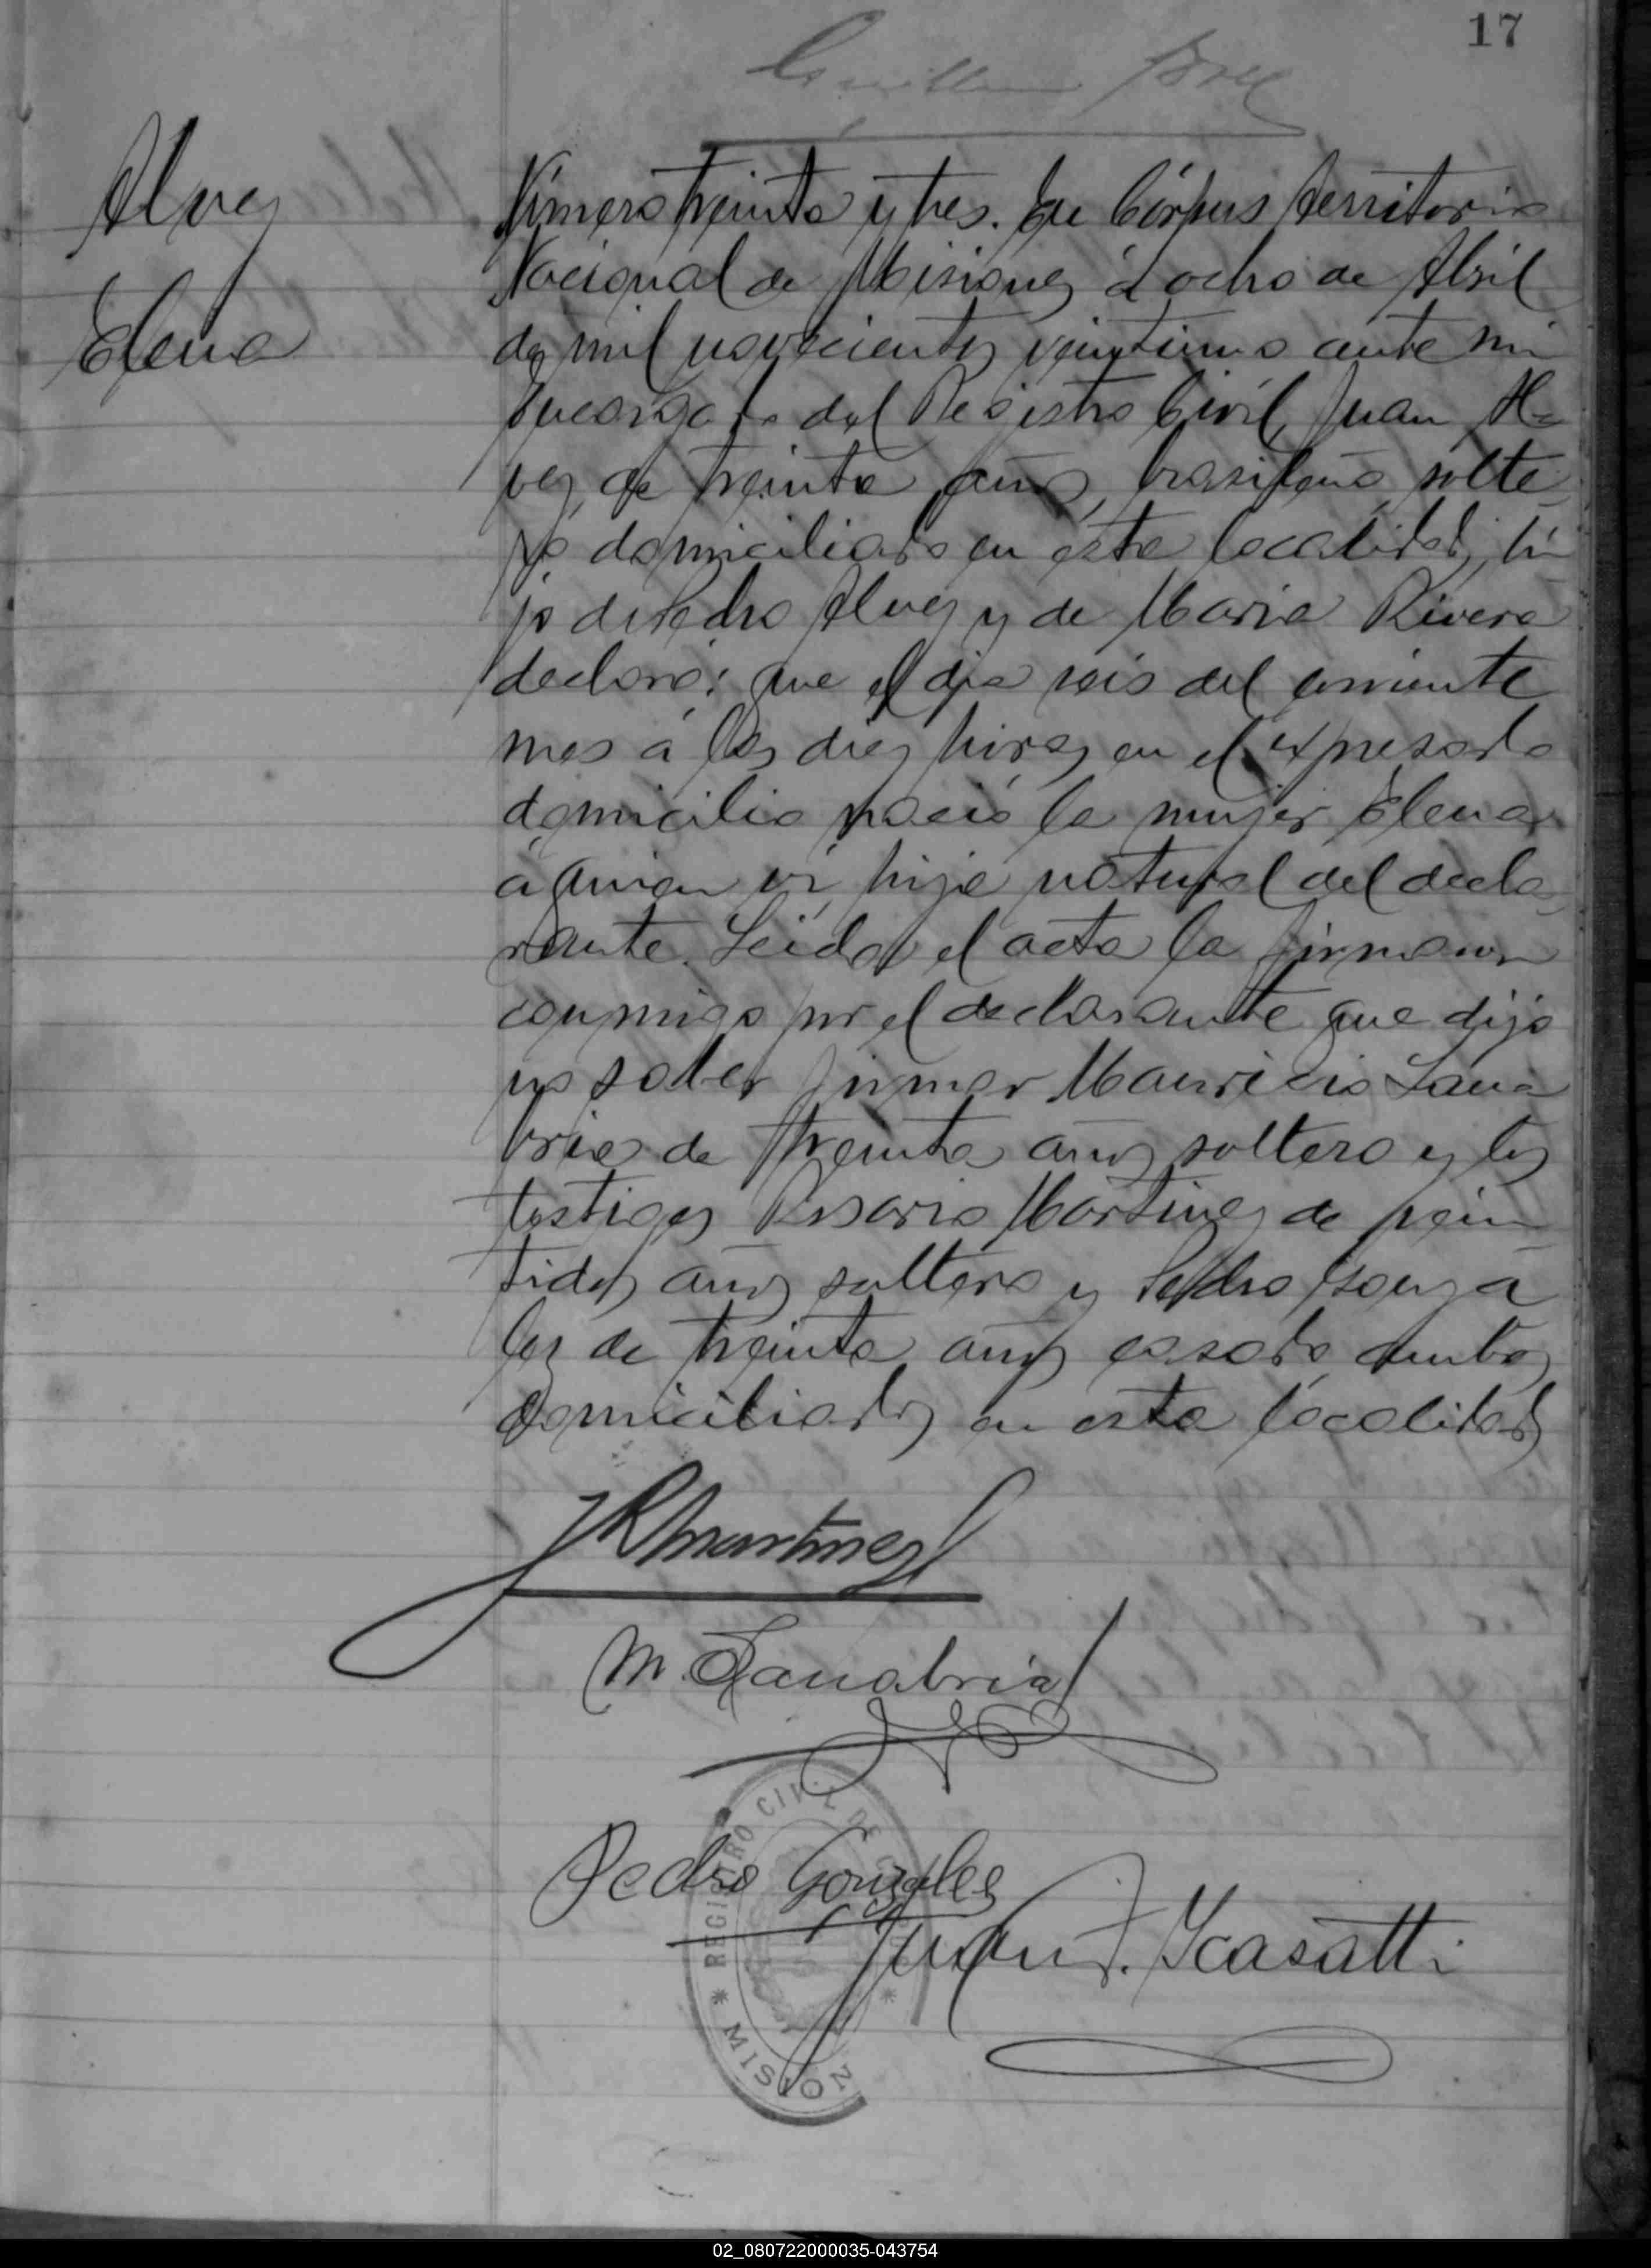 17
Alvez
Elena
Número treinta y tres. En Córpus territorio
Nacional de Misiones á ocho de Abril
de mil novecientos veintiuno ante mi
Encargado del Registro Civil, Juan Al-
vez, de treinta años, brasileño, solte
ro domiciliado en ésta localidad, hi
jo de Pedro Alvez y de Maria Rivera
declaró: que el dia seis del corriente
mes á las diez horas en el expresado
domicilio nació la mujer Elena
á quien vi, hija natural del decla
rante. Leida el acta la firmaron
conmigo por el declarante que dijo
no saber firmar Mauricio Sana
bria de treinta años soltero y los
testigos Rosario Martinez de vein
tidos años soltero y Pedro Gonzá
lez de treinta años casado ambos
domiciliados en esta localidad
JRMartinez
M. Sanabria
Pedro Gonzales
Juan F. Scasatti
REGISTRO CIVIL DE
* MISION
02_080722000035-043754